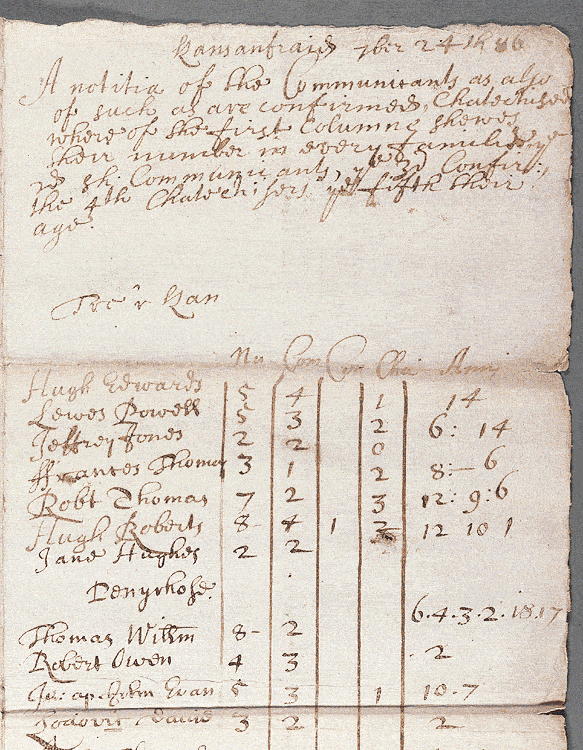 Llansanfraid 7ber 24 1686
A notitia of the Communicants as also
of such as are confirmed, Chatechised
where of the first Columne shewes
their number in every familie, ye
2d sh: Communicants, ye 3d Confir:
the 4th Chatechisers ye fifth their
age.
Tre'r Llan
Nu Com Con Cha Anni
Hugh Edwards 5 4 1 14
Lewes Powell 5 3 2 6: 14
Jeffrey Jones 2 2 0
ffrances Thomas 3 1 2 8:— 6
Robt Thomas 7 2 3 12: 9: 6
Hugh Roberts 8- 4 1 2 12 10 1
Jane Hughes 2 2
Penyrhose.
6. 4. 3. 2. 18. 17
Thomas Willm 8- 2
Robert Owen 4 3 2
ap Evan 5 3 1 10. 7
David 3 2 2